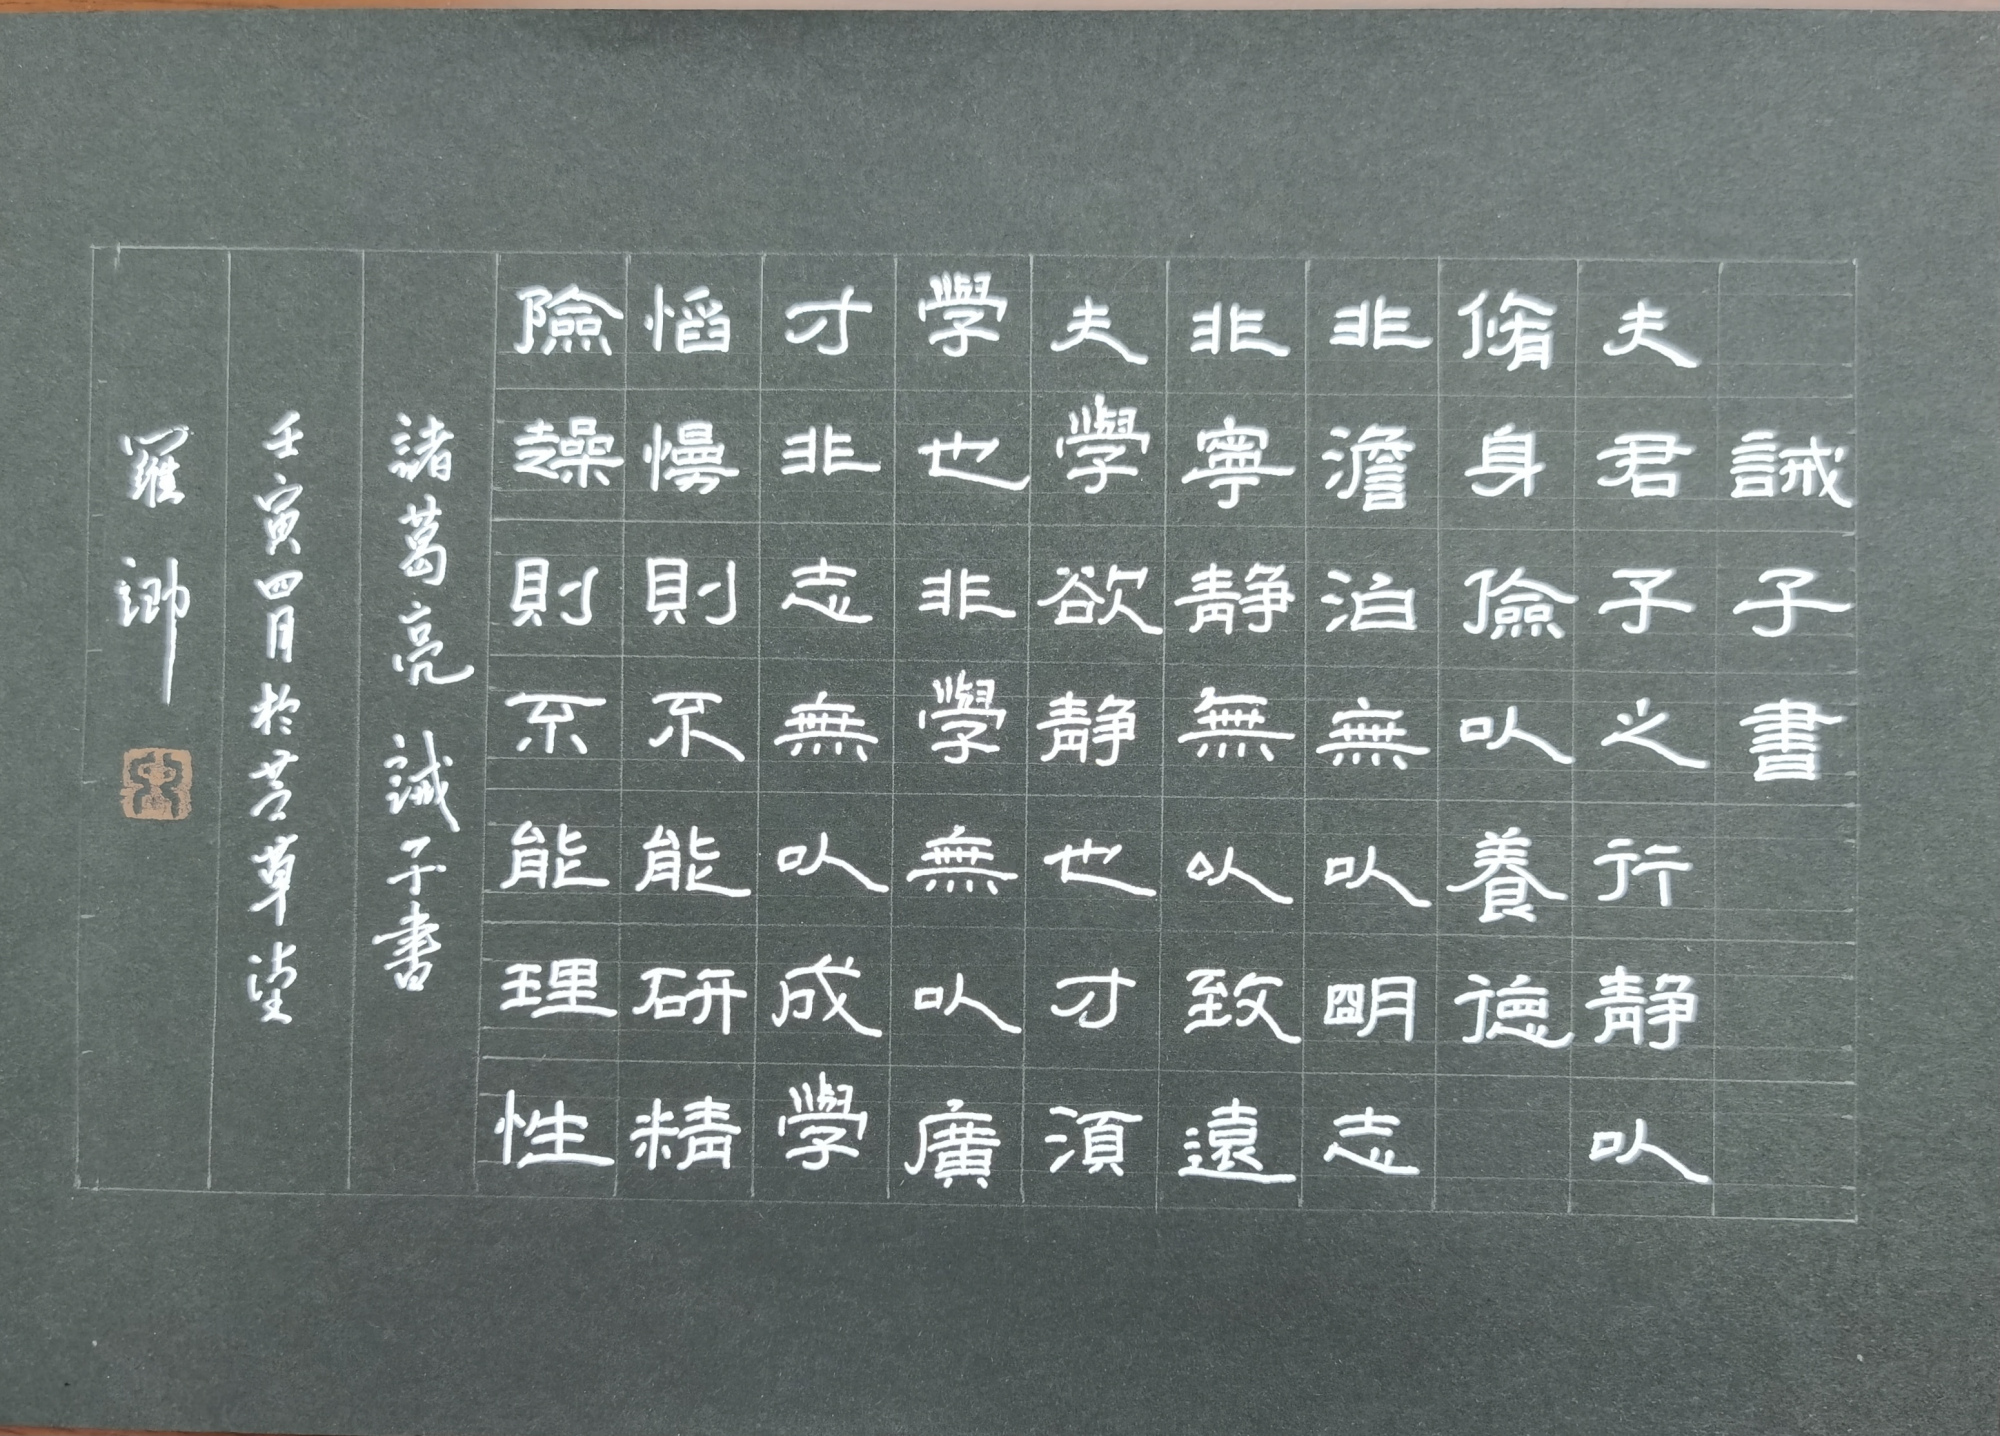 誡子書
夫君子之行靜以
脩身儉以養德
非澹泊無以明志
非寧靜無以致遠
夫學欲靜也才須
學也非學無以廣
才非志無以成學
慆慢則不能研精
險躁則不能理性
諸葛亮 誡子書
壬寅四月於草堂
羅卿